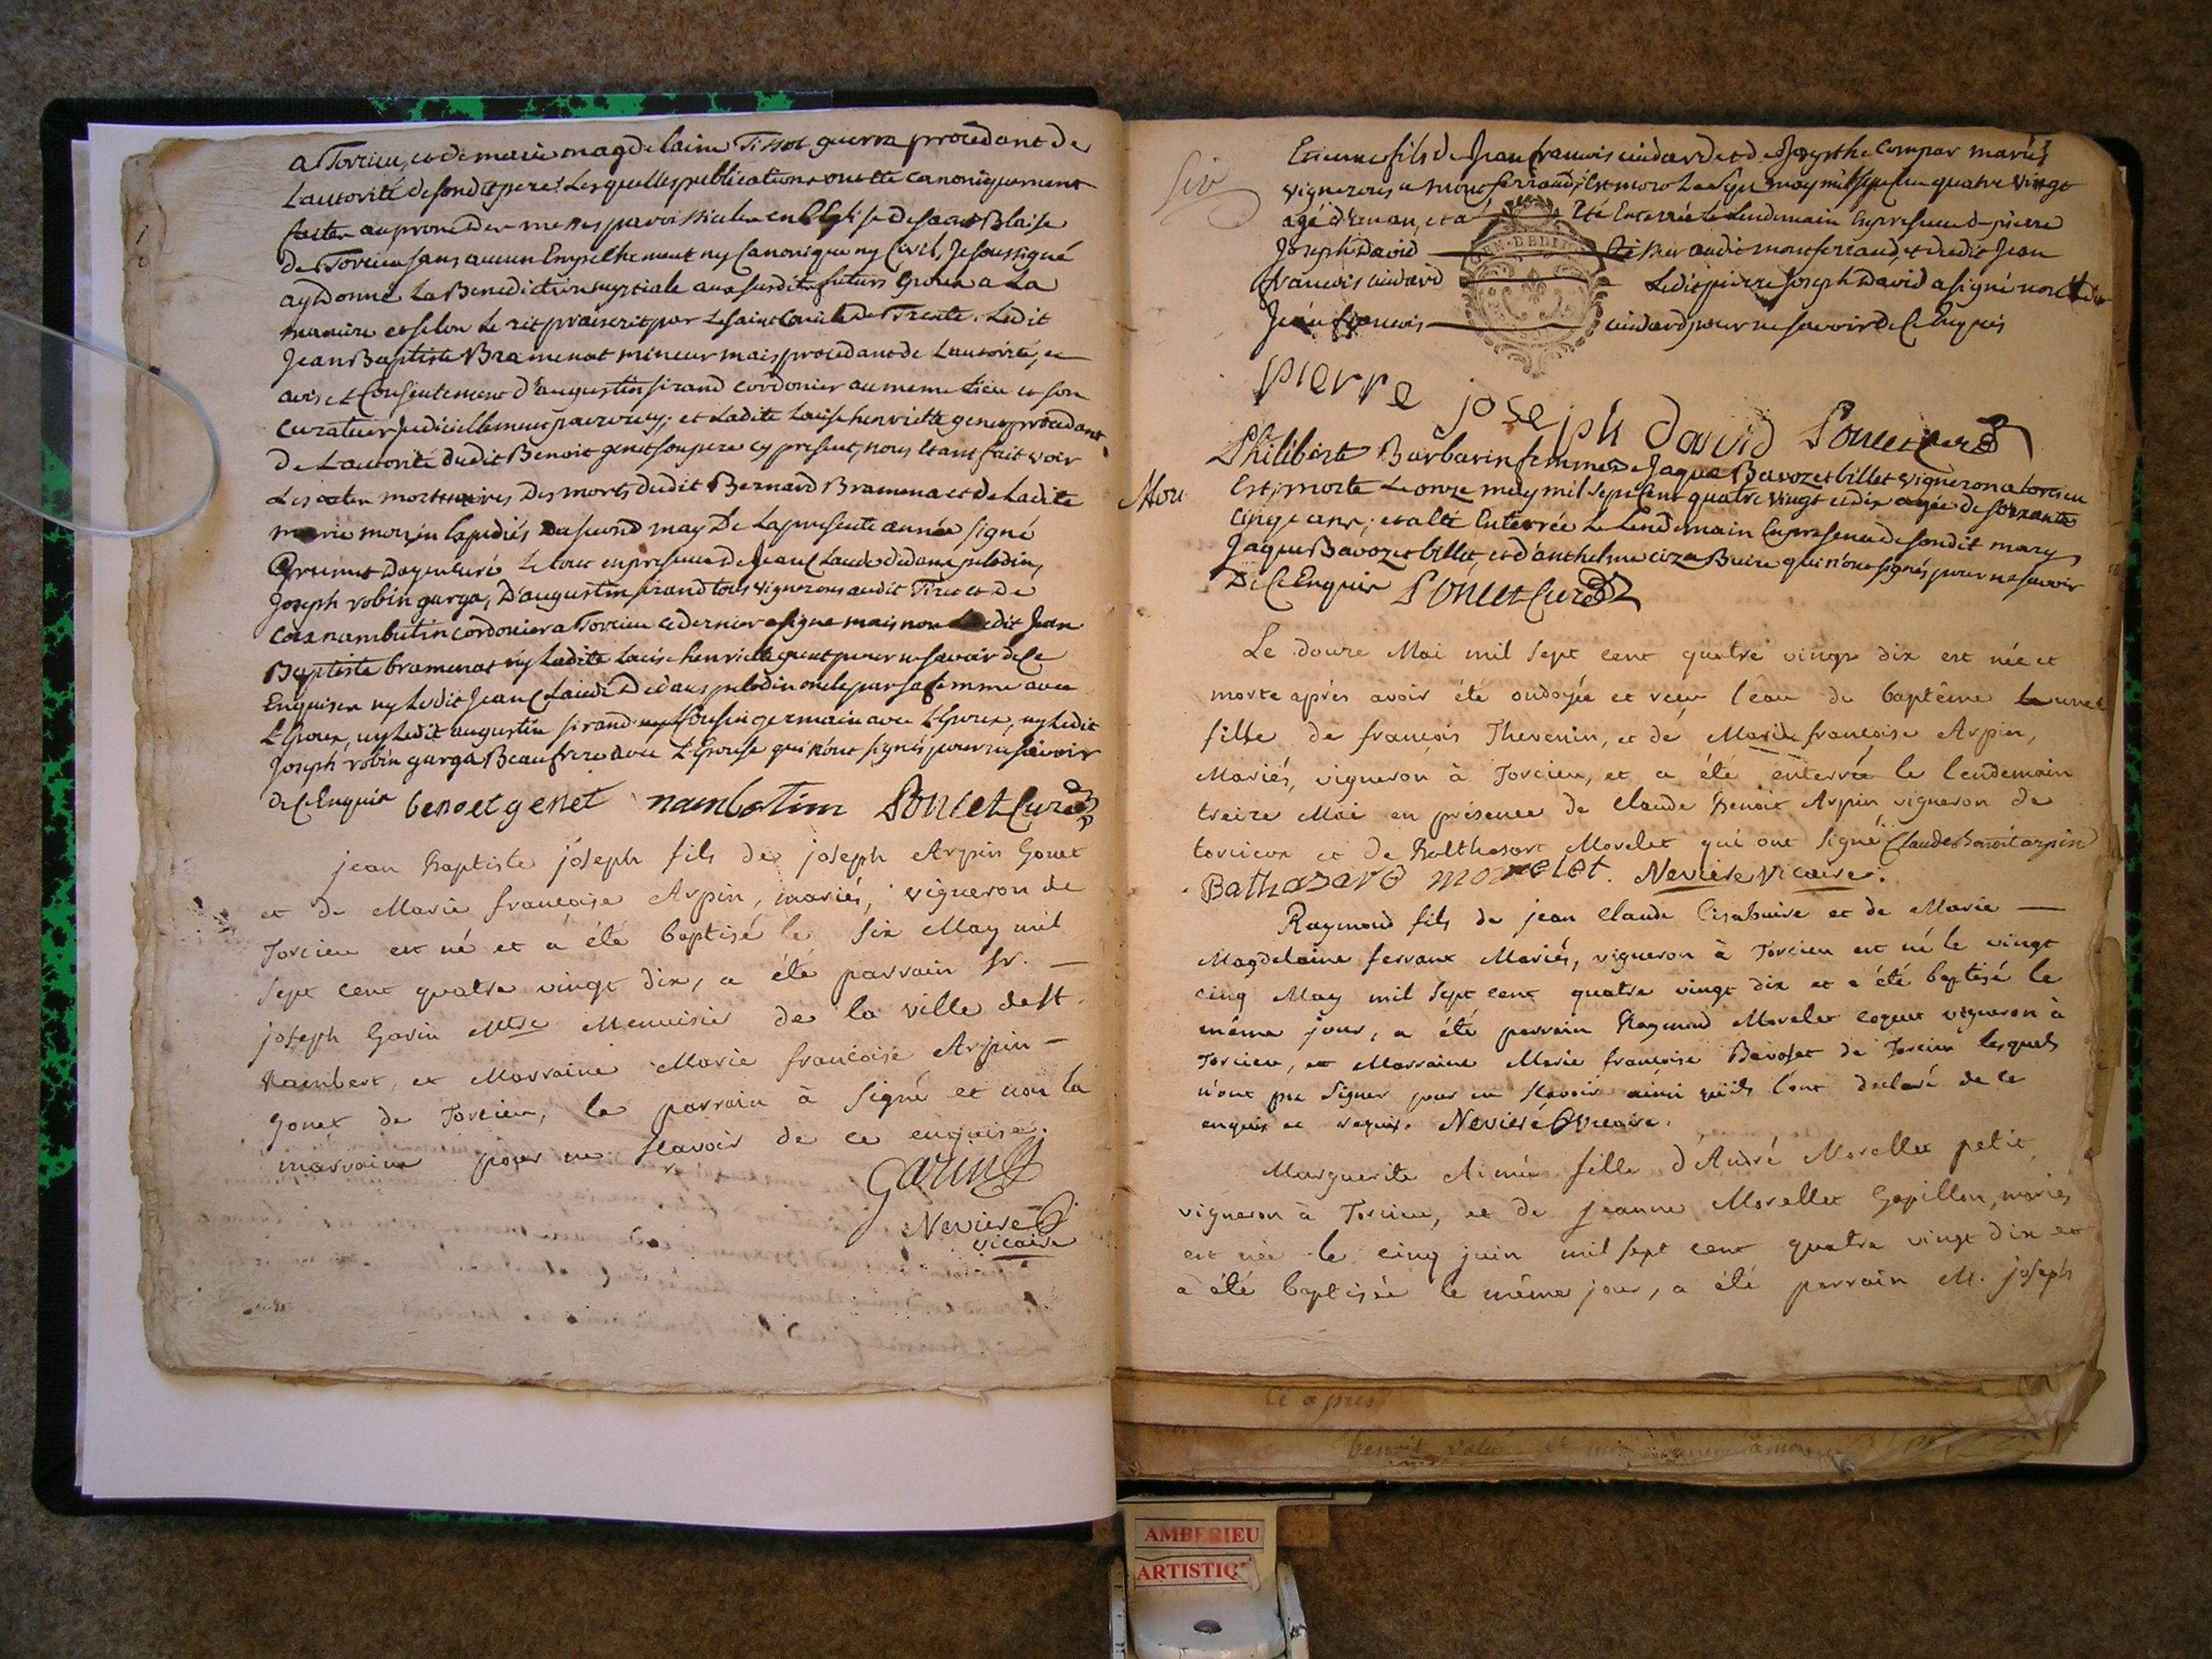 a Torcieu, et de marie magdelaine Tissot guerra procedant de
L'autorité de son dit pere; Lesquelles publications ont été canoniquement
faites au prone des messes paroissiales en l'Eglise de saint Blaise
de Torcieu sans aucun Empechement ny Canonique ny Civil, Je soussigné
ay donné La Benediction nuptiale aux susdits futurs Epoux a La
maniere et selon Le rit préscrit par Le saint Concile de Trente. Ledit
Jean Baptiste Bramenat mineur mais procedant de L'autorité, et
avis et Consentement d'augustin sirand cordonier au meme Lieu et son
curateur judiciellement pourvu; et Ladite Louise henriette genet procedant
de L'autorité dudit Benoit genet son pere cy present, nous etant fait voir
Les actes mortuaires des morts dudit Bernard Bramena et de Ladite
marie expediés du second may De La presente année signé
Le tout en presence de Jean Claude dedans pelodin,
Joseph robin gurga, D'augustin sirand tous vignerons audit Tire et de
nambutin cordonier a Torcieu ce dernier a signe mais non Ledit Jean
Baptiste bramenat ny Ladite Louise henriette genet pour ne savoir de Ce
Enquise ny Ledit Jean Claude Dedans pelodin oncle par sa femme avec
L'Epoux, ny Ledit augustin sirand Cousin germain avec L'Epoux, ny Ledit
Joseph robin gurga Beaufrere avec L'Epouse qui n'ont signés pour ne savoir
de C Enquis benoet genet nambotim Poncet Curé
jean Baptiste joseph fils de joseph Arpin Gonet
et de Marie françoise Arpin, mariés, vigneron de
Torcieu est né et a été baptisé le six May mil
sept cent quatre vingt dix, a été parrain sr. —
joseph Garin Mtre Menuisier de la ville de St.
Rambert, et Marraine Marie françoise Arpin —
gonet de Torcieu, le parrain à signé et non la
marraine pour ne sçavoir de ce enquise.
Garin
Neviere
vicaire
Etienne fils de Jean francois cuidard et de Compar mariés
vignerons a montferrand; Est mort Le may mil sept cent quatre vingt
agé d'un an, et a été Enterré Le Lendemain En presence de pierre
Joseph David audit montferrand, et dudit Jean
francois cuidard Ledit pierre Joseph David a signé non Ledit
Jean francois cuidard pour ne savoir de C Enquis
pierre joseph david Poncet Curé
Mor
Philiberte Barbarin femme de Jaque Bavozet billet vigneron a torcieu
Est morte Le onze may mil sept Cent quatre vingt et dix agée de soixante
Cinq ans; et a été Enterrée Le Lendemain En presence de son dit mary
Jaque Bavozet billet, et d'anthelme ciza Buire qui n'ont signés pour ne savoir
De C Enquis Poncet Curé
Le douze Mai mil sept cent quatre vingt dix est née et
morte après avoir été ondoyée et reçu l'eau du baptême une
fille de françois Thevenin, et de Marie françoise Arpin,
Mariés, vigneron à Torcieu, et a été enterrée le lendemain
treize Mai en présence de claude Benoit Arpin vigneron de
torcieux et de Balthasart Morelet qui ont signé Claude Benoit arpin
Bathasard morelet. Neviere Vicaire.
Raymond fils de jean Claude Cisabuire et de Marie —
Magdelaine ferrant Mariés, vigneron à Torcieu est né le vingt
cinq May mil sept cent quatre vingt dix et a été baptisé le
même jour, a été parrain Raymond Morelet coquet vigneron à
Torcieu, et Marraine Marie françoise Bavoset de Torcieu lesquels
n'ont pu signer pour ne sçavoir ainsi qu'ils l'ont declaré de ce
enquis et requis. Neviere Vicaire.
Marguerite Aimée fille d'André Morellet petit,
vigneron à Torcieu, et de jeanne Morellet Gopillon, mariés
est née le cinq juin mil sept cent quatre vingt dix et
a été baptisée le même jour, a été parrain M. joseph
AMBERIEU
ARTISTIQ